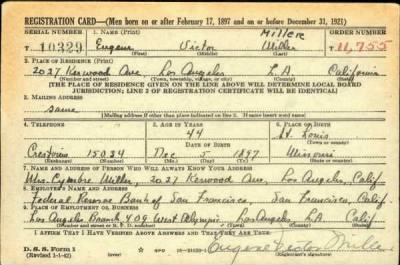 REGISTRATION CARD—(Men born on or after February 17, 1897 and on or before December 31, 1921)
SERIAL NUMBER 1. NAME (Print) MILLER ORDER NUMBER
T 10329 Eugene Victor Miller T 11,755
(First) (Middle) (Last)
2. PLACE OF RESIDENCE (Print)
2027 Kerwood Ave Los Angeles L.A. California
(Number and street) (Town, township, village, or city) (County) (State)
[THE PLACE OF RESIDENCE GIVEN ON THE LINE ABOVE WILL DETERMINE LOCAL BOARD
JURISDICTION; LINE 2 OF REGISTRATION CERTIFICATE WILL BE IDENTICAL]
3. MAILING ADDRESS
same
[Mailing address if other than place indicated on line 2. If same insert word same]
4. TELEPHONE 5. AGE IN YEARS 6. PLACE OF BIRTH
44 St. Louis
DATE OF BIRTH (Town or county)
Crestview 15034 Dec 5 1897 Missouri
(Exchange) (Number) (Mo.) (Day) (Yr.) (State or country)
7. NAME AND ADDRESS OF PERSON WHO WILL ALWAYS KNOW YOUR ADDRESS
Mrs. Miller, 2027 Kerwood Ave, Los Angeles, Calif.
8. EMPLOYER'S NAME AND ADDRESS
Federal Reserve Bank of San Francisco, San Francisco, Calif
9. PLACE OF EMPLOYMENT OR BUSINESS
Los Angeles Branch 409 West Olympic, Los Angeles, L.A. Calif
(Number and street or R. F. D. number) (Town) (County) (State)
I AFFIRM THAT I HAVE VERIFIED ABOVE ANSWERS AND THAT THEY ARE TRUE.
D. S. S. Form 1 Eugene Victor Miller
(Revised 1-1-42) (Registrant's signature)